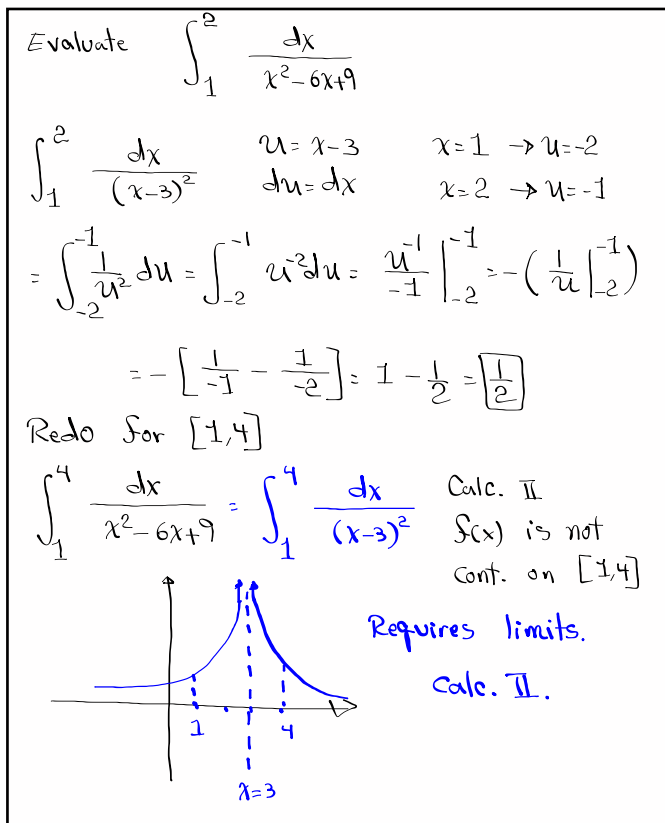 Evaluate ∫_1^2 dx/(x²-6x+9)
∫_1^2 dx/(x-3)²   u=x-3   x=1 → u=-2
du=dx   x=2 → u=-1
= ∫_{-2}^{-1} 1/u² du = ∫_{-2}^{-1} u^{-2} du = u^{-1}/-1 |_{-2}^{-1} = -(1/u |_{-2}^{-1})
= -[1/-1 - 1/-2] = 1 - 1/2 = 1/2
Redo for [1,4]
∫_1^4 dx/(x²-6x+9) = ∫_1^4 dx/(x-3)²   Calc. II
f(x) is not
cont. on [1,4]
Requires limits.
Calc. II.
1   4
x=3